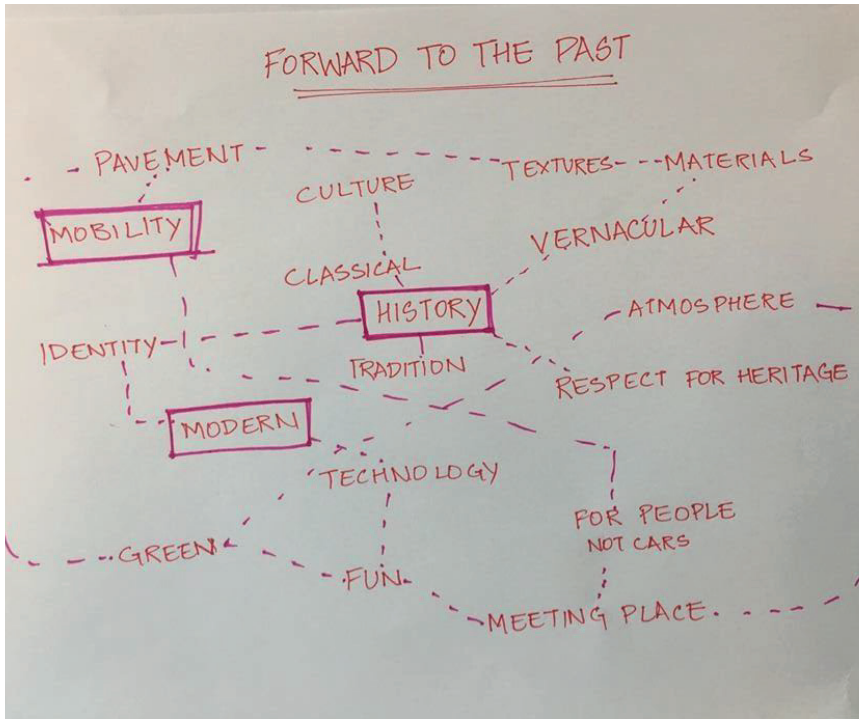 FORWARD TO THE PAST
PAVEMENT
TEXTURES
MATERIALS
CULTURE
MOBILITY
VERNACULAR
CLASSICAL
HISTORY
ATMOSPHERE
IDENTITY
TRADITION
RESPECT FOR HERITAGE
MODERN
TECHNOLOGY
FOR PEOPLE
NOT CARS
GREEN
FUN
MEETING PLACE